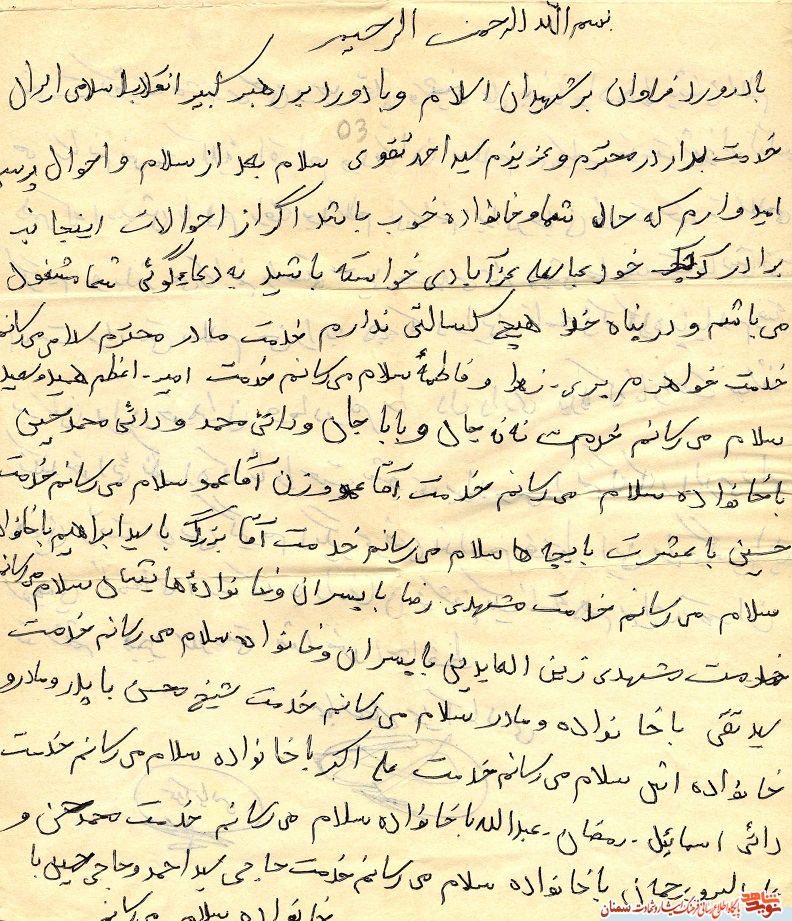 بسم الله الرحمن الرحیم
با درورد فراوان بر شهیدان اسلام و با دورد بر رهبر کبیر انقلاب اسلامی ایران
03
خدمت برادر محترم و عزیزم سید احمد تقوی سلام بعد از سلام و احوال پرسی
امیدوارم که حال شما و خانواده خوب باشد اگر از احوالات اینجانب
برادر کوچک خود عباسعلی عزآبادی خواسته باشید به دعاءگوئی شما مشغول
می باشم و در پناه خدا هیچ کسالتی ندارم خدمت مادر محترم سلام می رسانم
خدمت خواهرم پری - زهرا و فاطمهٔ سلام می رسانم خدمت امیر - اعظم حمید و سعید
سلام می رسانم خدمت ننه جان و بابا جان و دائی محمد و دائی محمد حسین
با خانواده سلام می رسانم خدمت آقا عمو و زن آقا عمو سلام می رسانم خدمت
حسین با عشرت با بچه ها سلام می رسانم خدمت آقا بزرگ با سید ابراهیم با خانواده
سلام می رسانم خدمت مشهدی رضا با پسران و خانوادهٔ هایشان سلام می رسانم
خدمت مشهدی زین العابدین با پسران و خانواده سلام می رسانم خدمت
سید تقی با خانواده و مادر سلام می رسانم خدمت شیخ محسن با پدر و مادر و
خانواده اش سلام می رسانم خدمت علی اکبر با خانواده سلام می رسانم خدمت
دائی اسمائیل - رمضان - عبدالله با خانواده سلام می رسانم خدمت محمد حسن و
با خانواده سلام می رسانم خدمت حاجی سید احمد و حاجی حسین با
خانواده سلام می رسانم
نوید شاهد
پایگاه اطلاع رسانی فرهنگ ایثار و شهادت سمنان